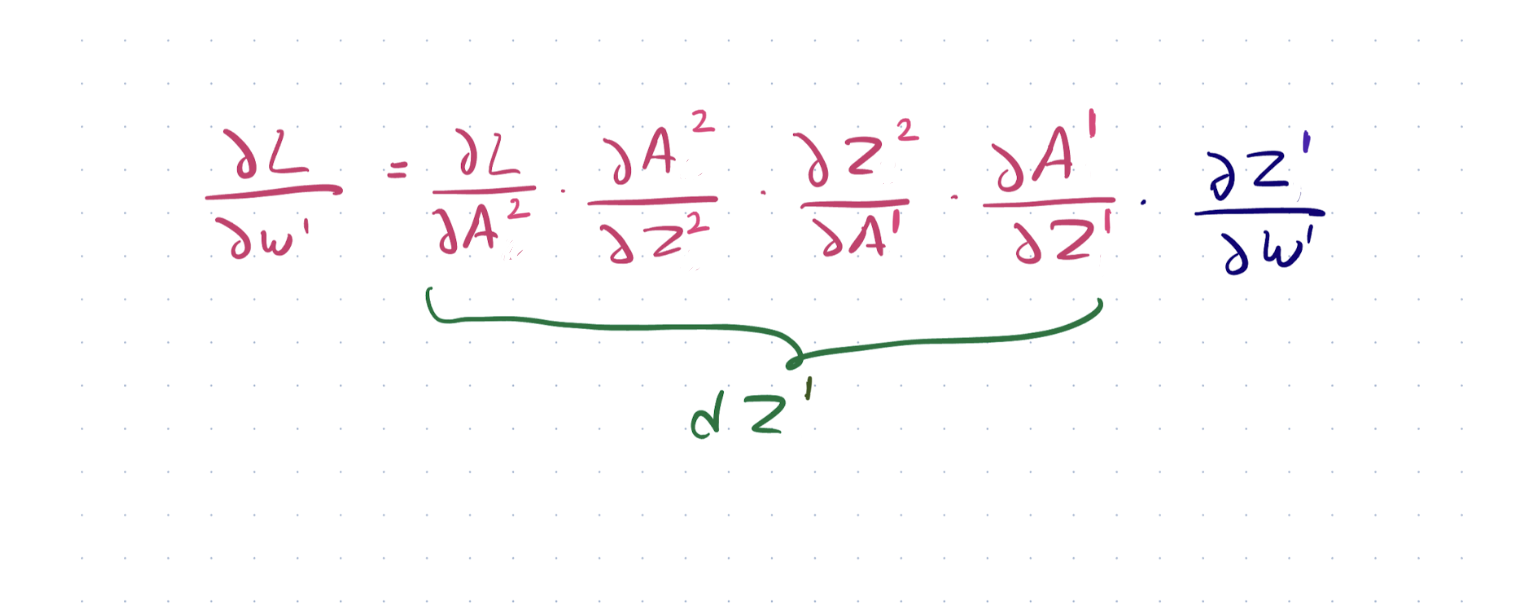 ∂L/∂w¹ = ∂L/∂A² · ∂A²/∂Z² · ∂Z²/∂A¹ · ∂A¹/∂Z¹ · ∂Z¹/∂w¹
dZ¹